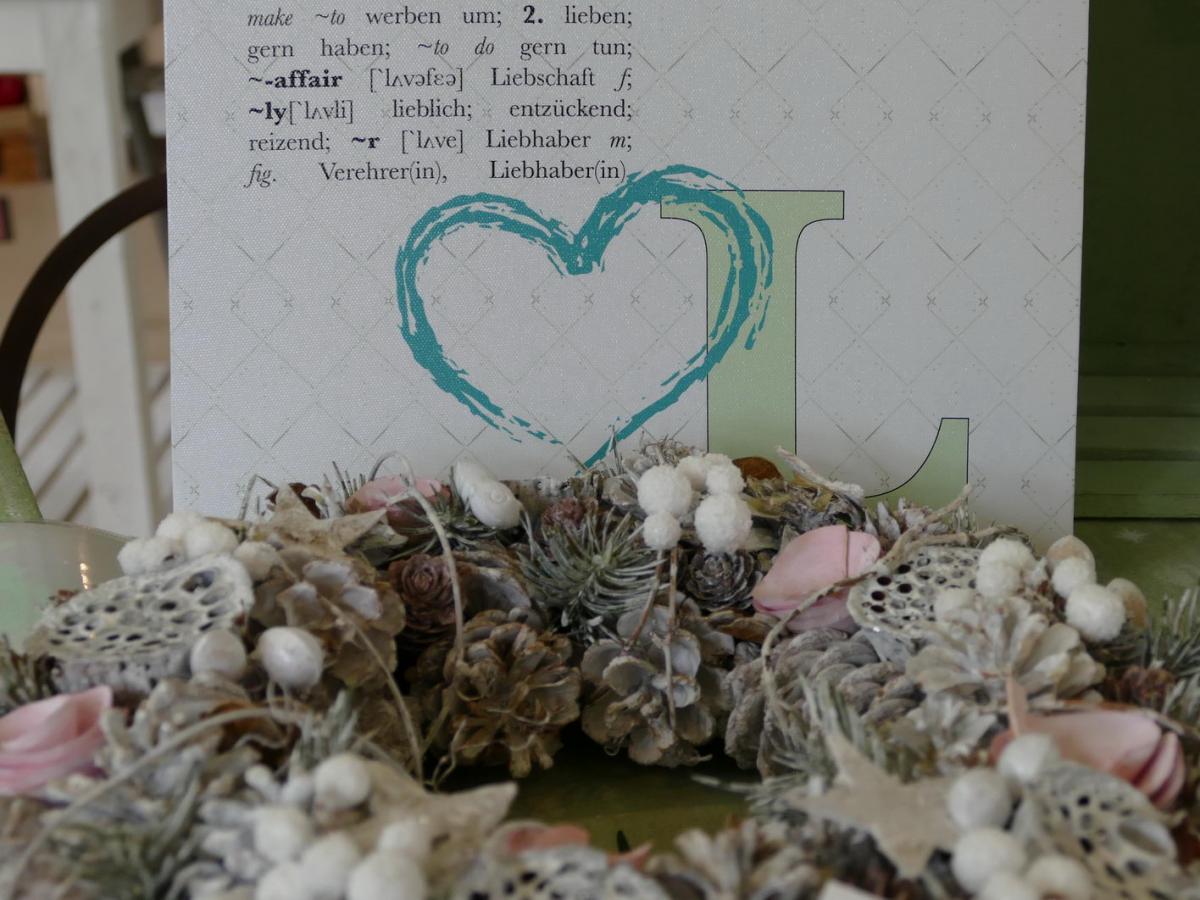 make ~to werben um; 2. lieben;
gern haben; ~to do gern tun;
~-affair [`lʌvəfɛə] Liebschaft f;
~ly[`lʌvli] lieblich; entzückend;
reizend; ~r [`lʌve] Liebhaber m;
fig. Verehrer(in), Liebhaber(in)
L